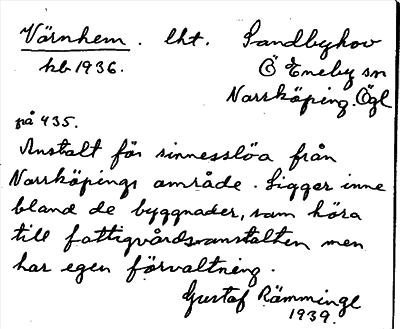 Värnhem. lht. Sandbyhov
kb 1936. Ö Eneby sn
Norrköping. Ögl
på 435.
Anstalt för sinnesslöa från
Norrköpings område. Ligger inne
bland de byggnader, som höra
till fattigvårdsanstalten men
har egen förvaltning.
Gustaf Rämminge
1939.